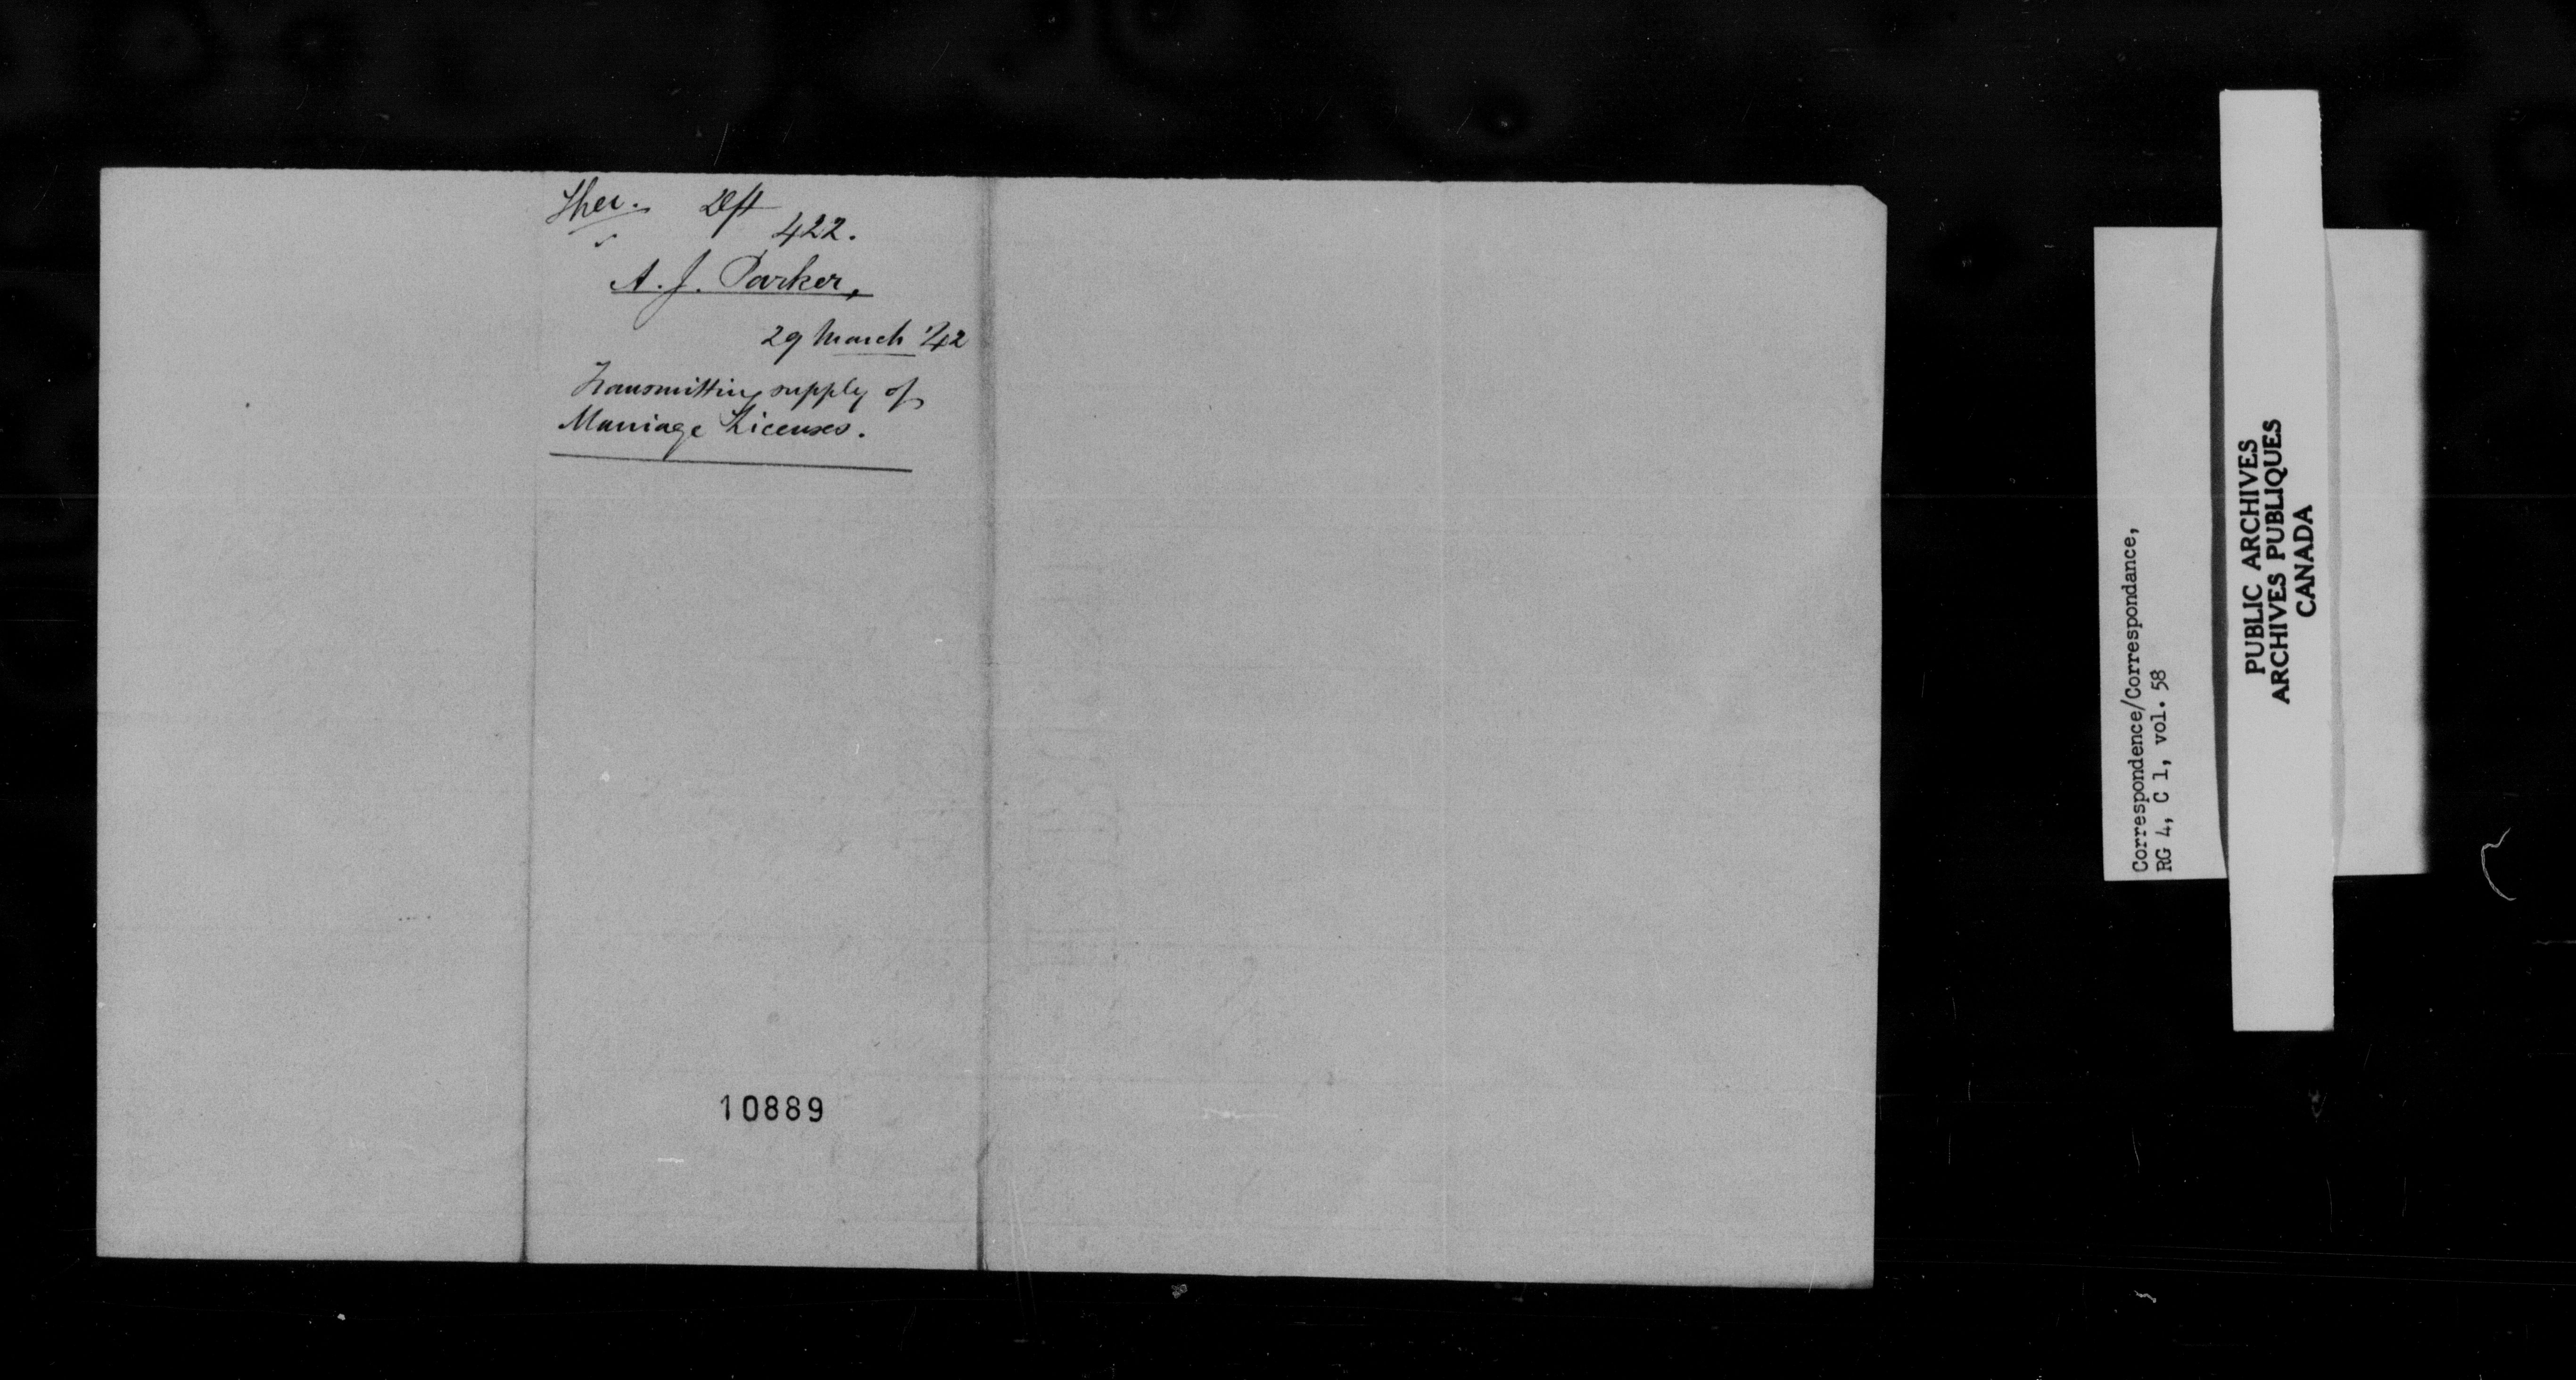 Sher. Dft
422.
A. J. Parker,
29 March '42
Transmitting supply of
Marriage Licenses.
10889
Correspondence/Correspondance,
RG 4, C 1, vol. 58
PUBLIC ARCHIVES
ARCHIVES PUBLIQUES
CANADA